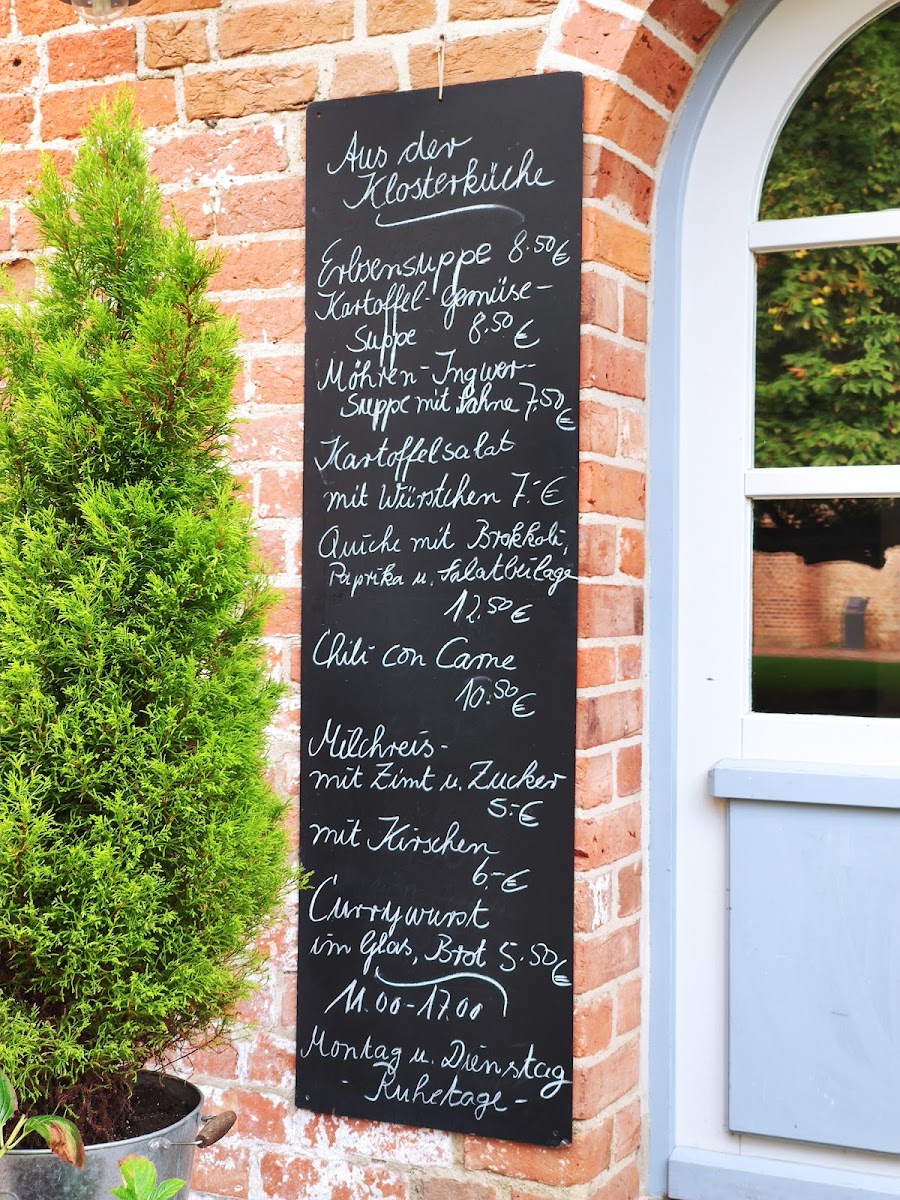 Aus der
Klosterküche
Erbsensuppe 8.50 €
Kartoffel-Gemüse-
Suppe 8.50 €
Möhren-Ingwer-
Suppe mit Sahne 7.50 €
Kartoffelsalat
mit Würstchen 7.- €
Quiche mit Brokkoli,
Paprika u. Salatbeilage
12.50 €
Chili con Carne
10.50 €
Milchreis-
mit Zimt u. Zucker
5.- €
mit Kirschen
6.- €
Currywurst
im Glas, Brot 5.50 €
11.00-17.00
Montag u. Dienstag
- Ruhetage -